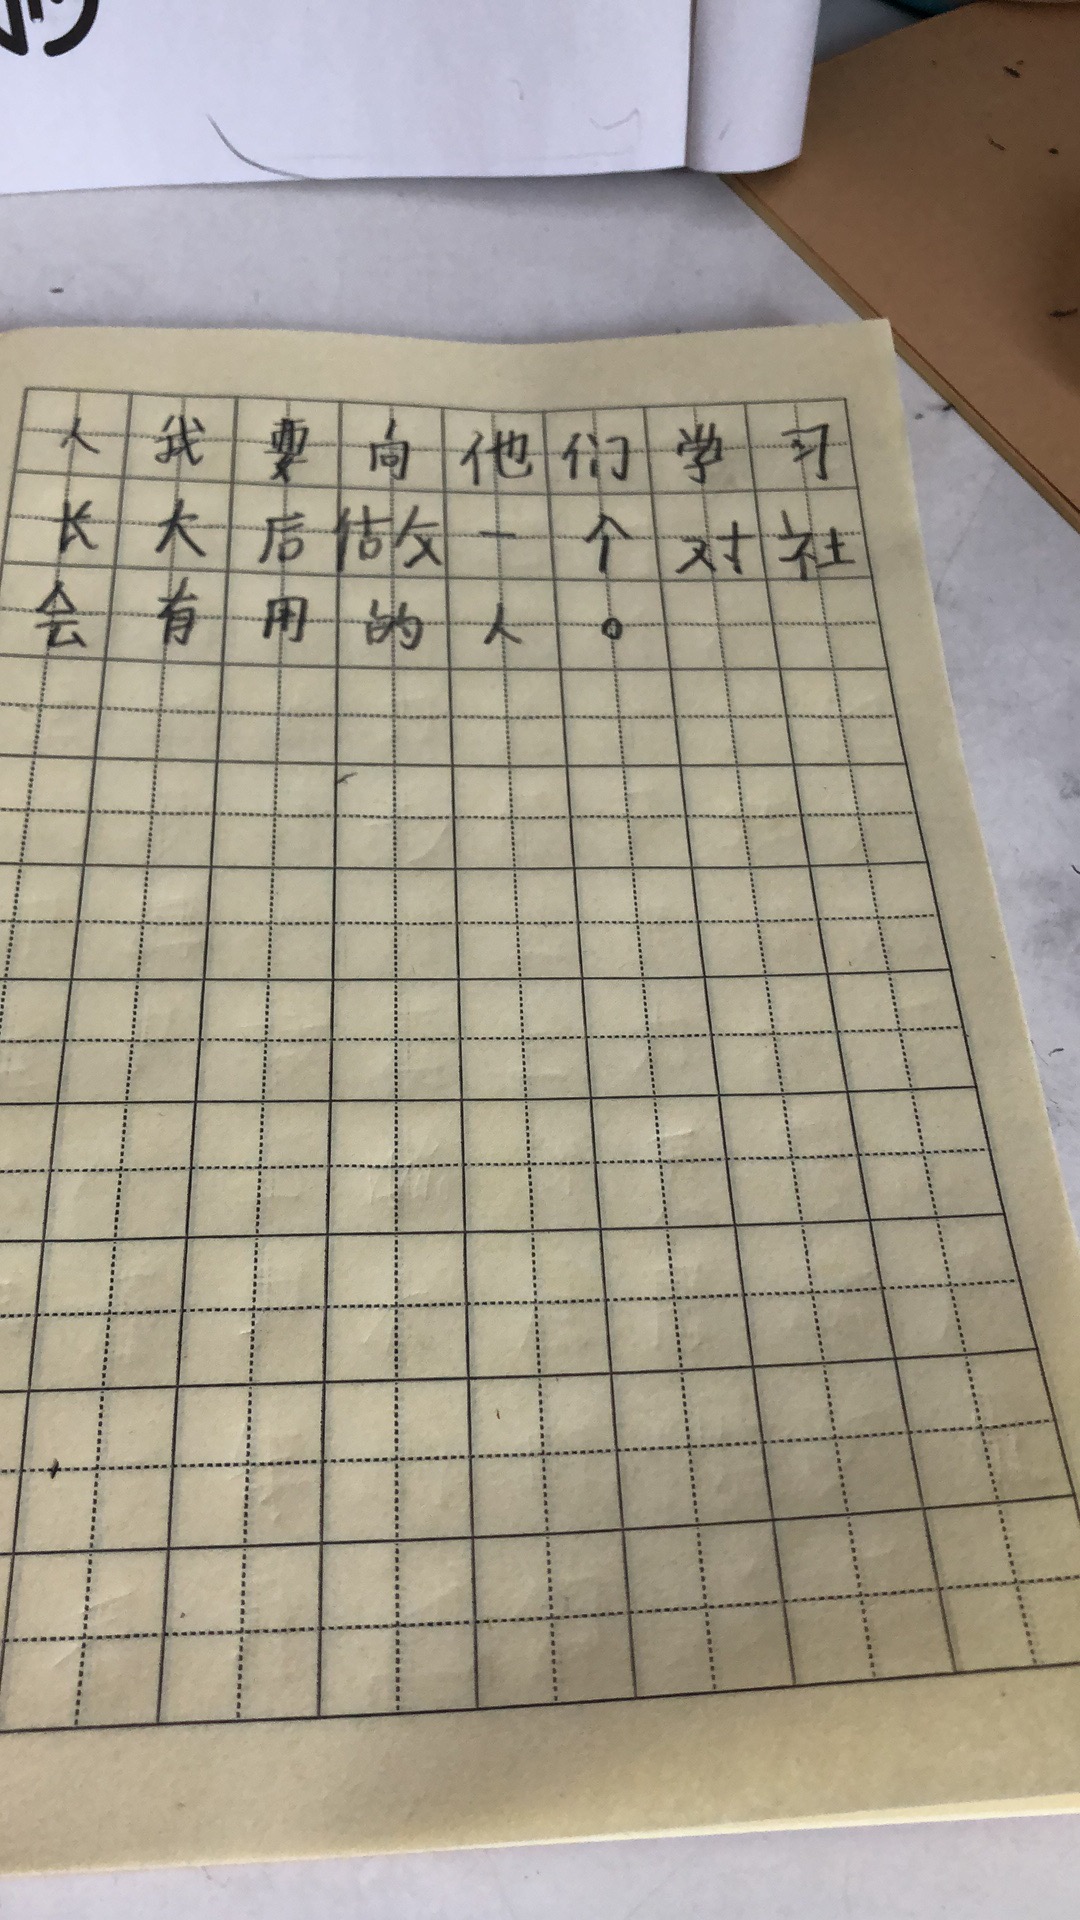 人我要向他们学习
长大后做一个对社
会有用的人。